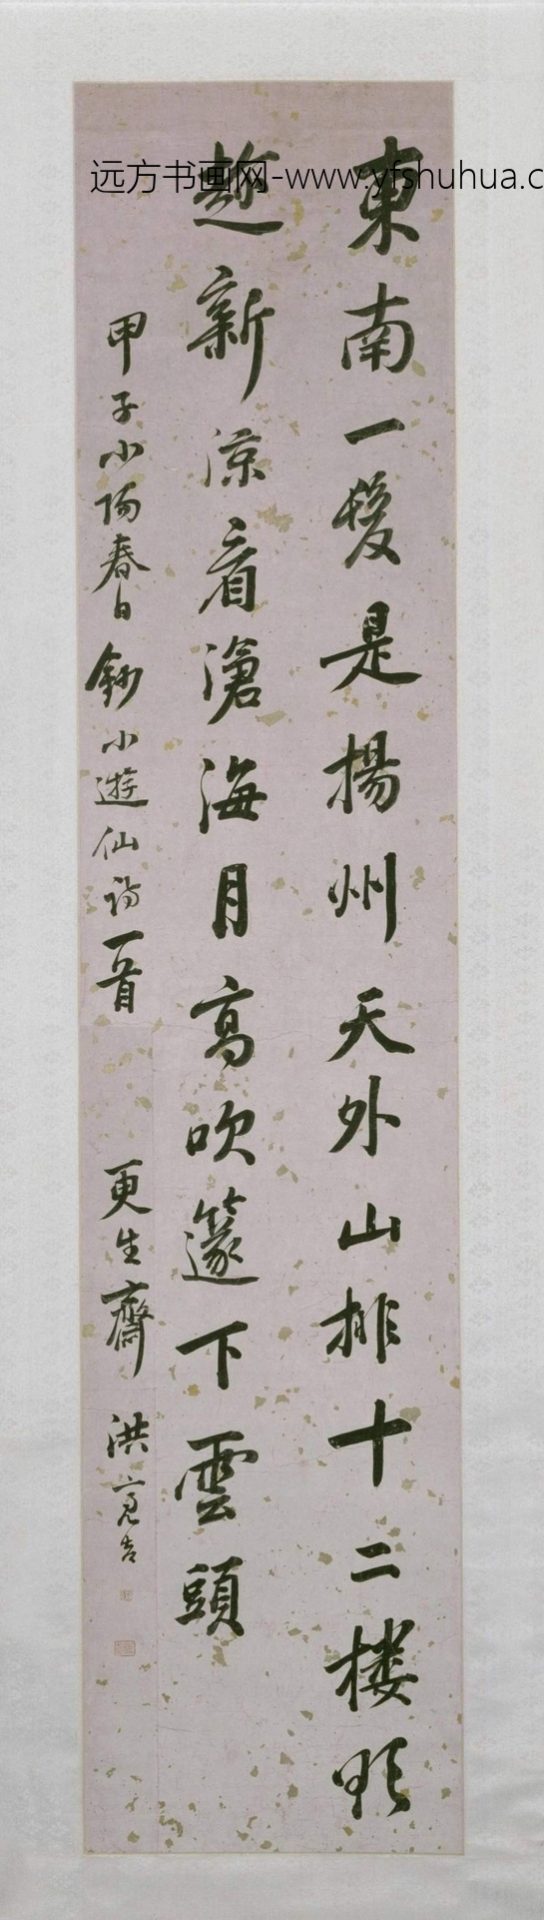 远方书画网-www.yfshuhua.c
東南一髮是揚州天外山排十二樓欲
趂新涼看滄海月高吹篴下雲頭
甲子小陽春日鈔小遊仙詩一首 更生齋洪亮吉